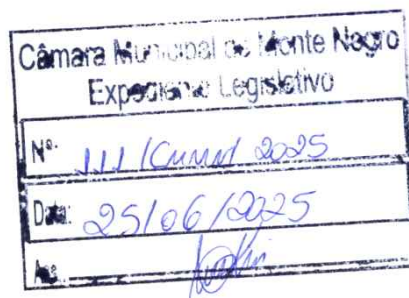 Câmara Municipal de Monte Negro
Expediente Legislativo
Nº: 111 /CMMN/ 2025
Data: 25/06/2025
Ass